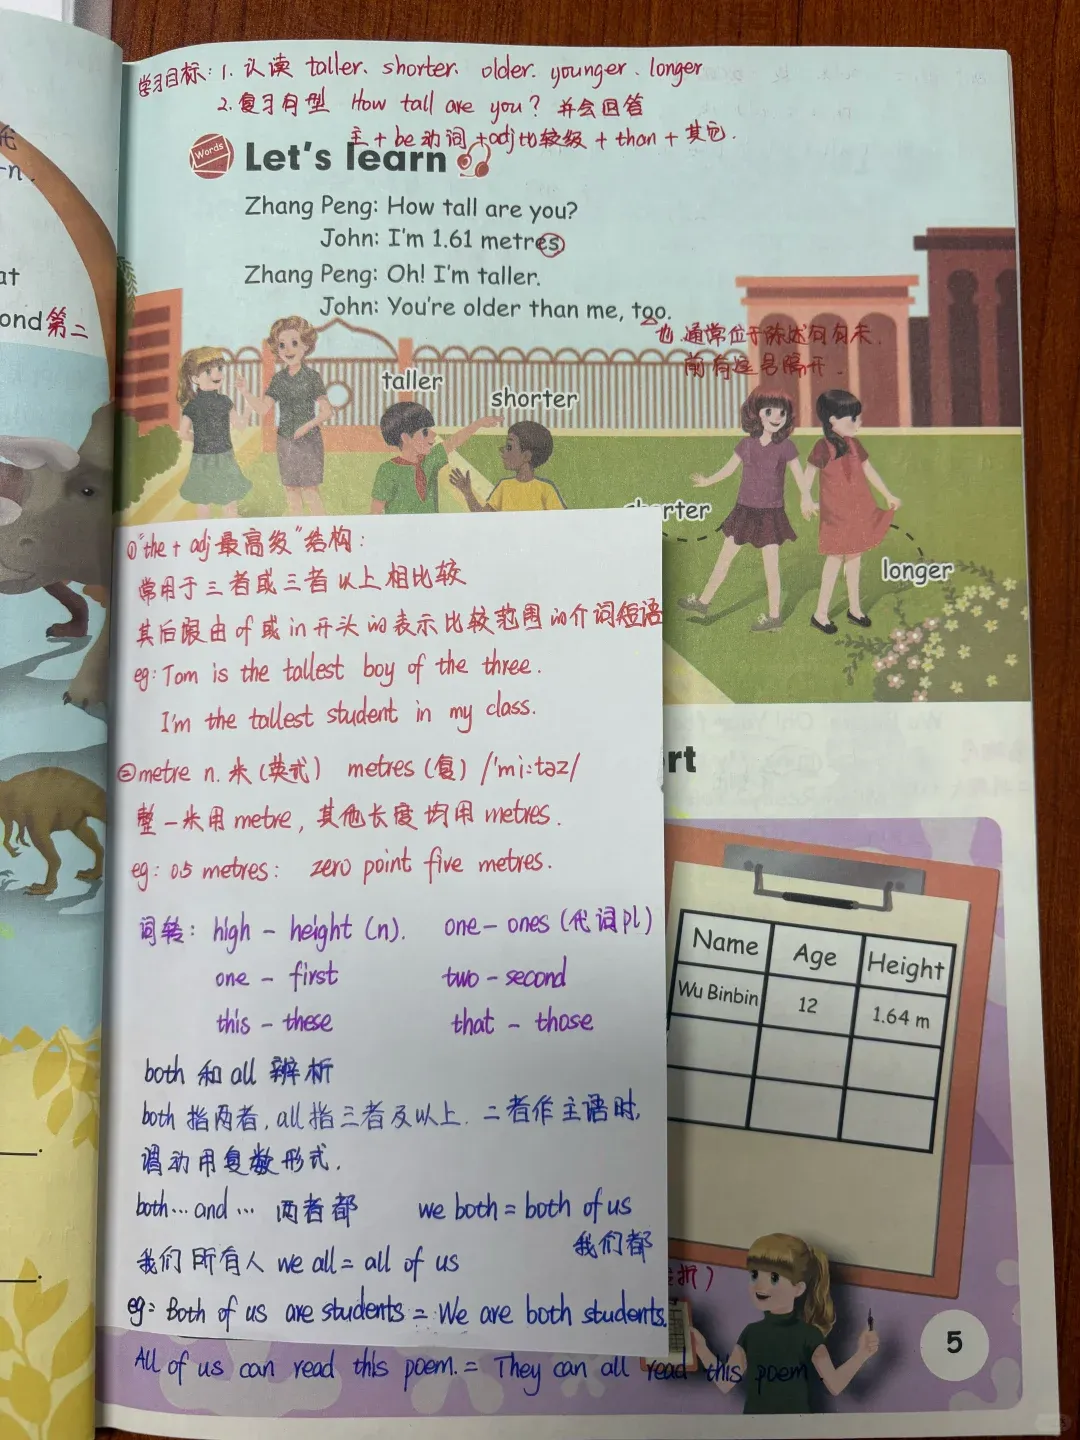 学习目标: 1. 认读 taller、shorter、older、younger、longer
2. 复习句型 How tall are you? 并会回答
主 + be 动词 + adj比较级 + than + 其它.
Words
Let's learn
Zhang Peng: How tall are you?
John: I'm 1.61 metres
Zhang Peng: Oh! I'm taller.
John: You're older than me, too.
也 通常位于陈述句句末.
前有逗号隔开.
at
ond 第二
taller
shorter
rter
longer
① "the + adj 最高级" 结构:
常用于三者或三者以上相比较
其后跟由 of 或 in 开头的表示比较范围的介词短语
eg: Tom is the tallest boy of the three.
I'm the tallest student in my class.
② metre n. 米 (英式) metres (复) /'mi:təz/
整一米用 metre, 其他长度均用 metres.
eg: 0.5 metres: zero point five metres.
词转: high - height (n). one - ones (代词pl)
one - first two - second
this - these that - those
both 和 all 辨析
both 指两者, all 指三者及以上. 二者作主语时,
谓动用复数形式.
both … and … 两者都 we both = both of us
我们都
我们所有人 we all = all of us
eg: Both of us are students = We are both students.
All of us can read this poem. = They can all read this poem.
rt
Name Age Height
Wu Binbin 12 1.64 m
折)
5